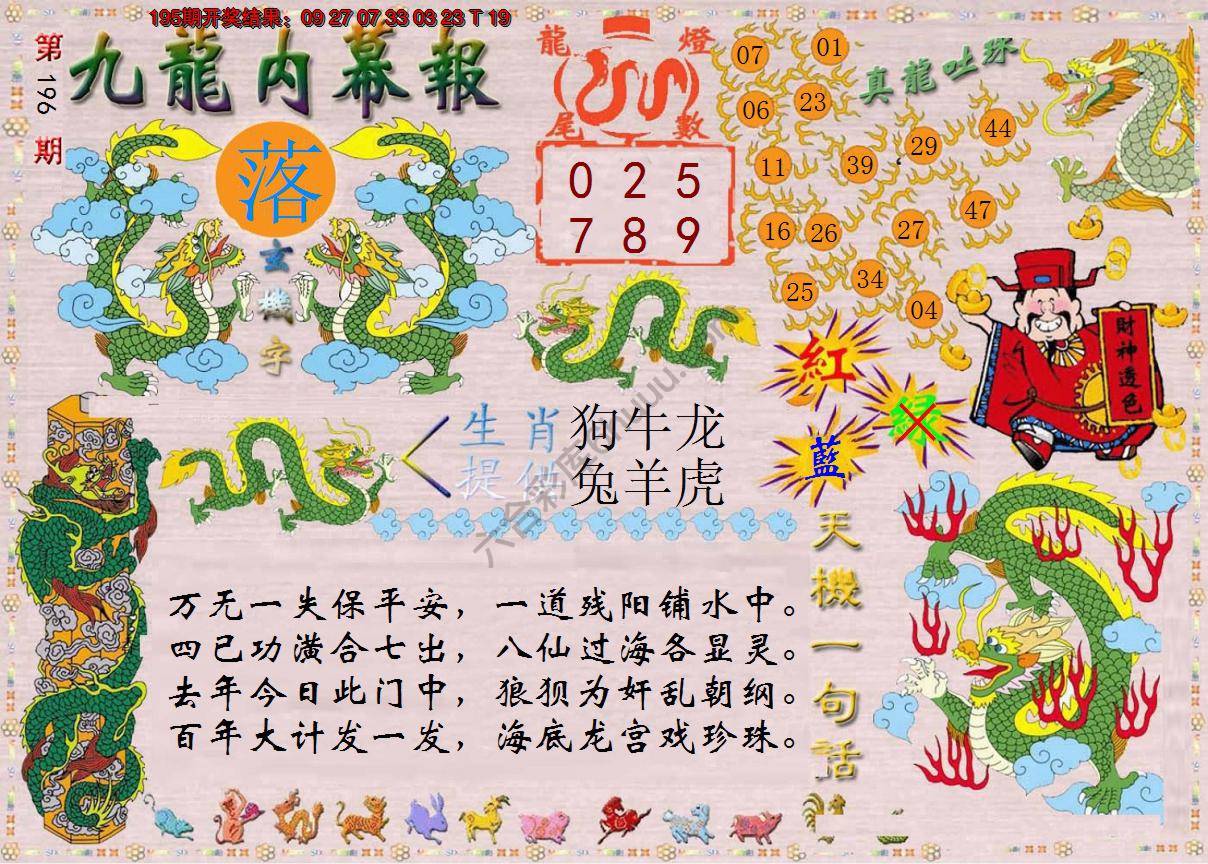 195期开奖结果：09 27 07 33 03 23 T 19
第196期
九龍内幕報
落
玄機字
龍燈
尾數
0 2 5
7 8 9
真龍吐珠
07 01
06 23
11 39 29 44
16 26 27 47
25 34 04
財神透色
紅
綠
藍
生肖 狗牛龙
提供 兔羊虎
天機一句话
万无一失保平安，一道残阳铺水中。
四已功潢合七出，八仙过海各显灵。
去年今日此门中，狼狈为奸乱朝纲。
百年大计发一发，海底龙宫戏珍珠。